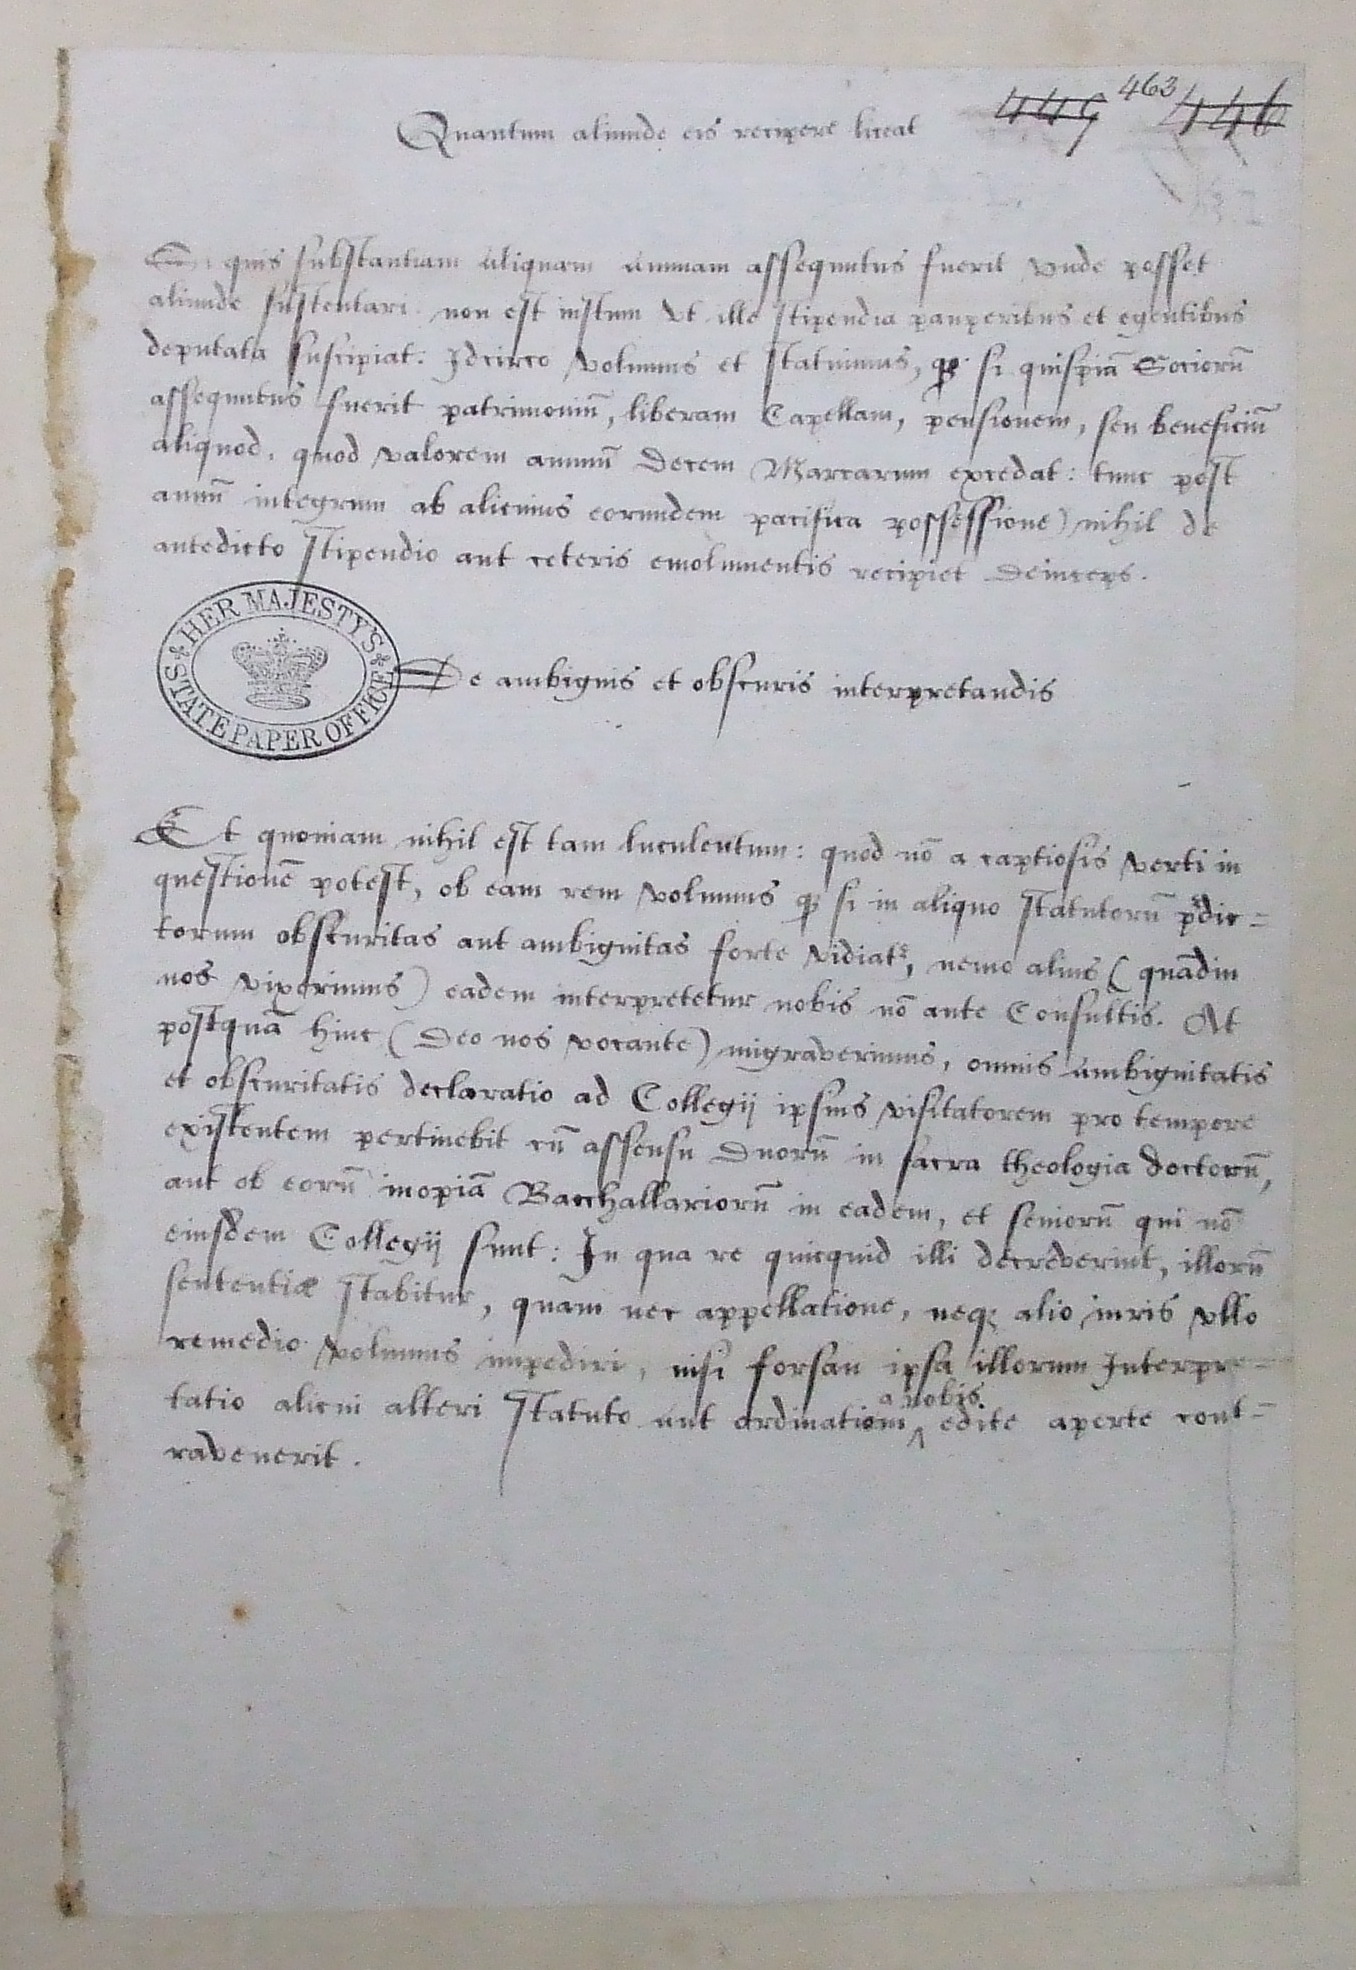 449 463 446
Quantum aliunde eis recipere liceat
Si quis substantiam aliquam annuam assequutus fuerit vnde posset
aliunde sustentari non est iustum vt ille stipendia pauperibus et egentibus
deputata suscipiat. Idcirco volumus et statuimus, qȝ si quispiā Sociorū
assequutus fuerit patrimoniū, liberam Capellam, pensionem, seu beneficiū
aliquod, quod valorem annuū Decem Marcarum excedat: tunc post
annū integrum ab alicuius eorundem pacifica possessione) nihil de
antedicto stipendio aut ceteris emolumentis recipiet deinceps.
HER MAJESTY'S STATE PAPER OFFICE
De ambiguis et obscuris interpretandis
Et quoniam nihil est tam luculentum: quod nō a captiosis verti in
questionē potest, ob eam rem volumus qȝ si in aliquo statutorū p̄dic=
torum obscuritas aut ambiguitas forte vidiatr, nemo alius (quādiu
nos vixerimus) eadem interpretetur nobis nō ante Consultis. At
postquā hinc (Deo nos vocante) migraverimus, omnis ambiguitatis
et obscuritatis declaratio ad Collegij ipsius visitatorem pro tempore
existentem pertinebit cū assensu Duorū in sacra theologia doctorū,
aut ob eorū inopiā Bacchallariorū in eadem, et seniorū qui nō
eiusdem Collegij sunt: In qua re quicquid illi decreverint, illorū
sententiæ stabitur, quam nec appellatione, neqȝ alio iuris vllo
remedio volumus impediri, nisi forsan ipsa illorum Interpre=
tatio alicui alteri statuto aut ordinationi a nobis edite aperte cont=
ravenerit.